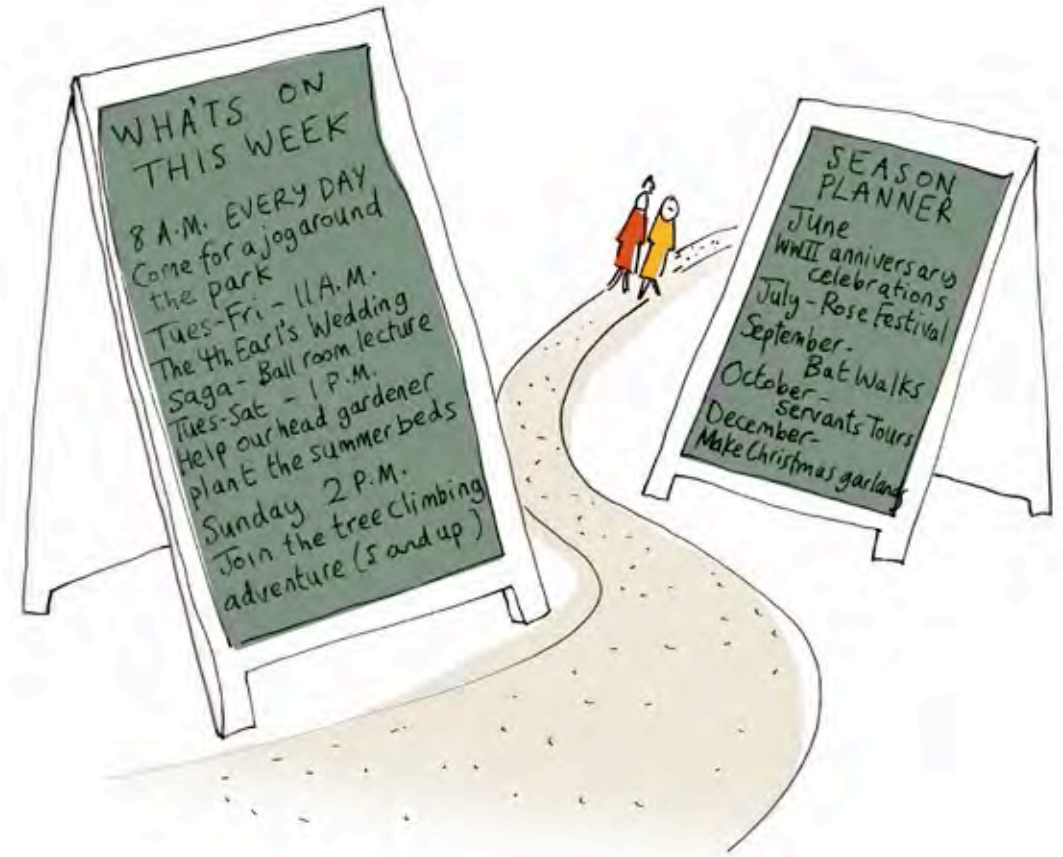 WHA'TS ON
THIS WEEK
8 A.M. EVERY DAY
Come for a jog around
the park
Tues-Fri - 11 A.M.
The 4th Earl's Wedding
Saga - Ball room lecture
Tues-Sat - 1 P.M.
Help our head gardener
plant the summer beds
Sunday 2 P.M.
Join the tree climbing
adventure (5 and up)
SEASON
PLANNER
June
WWII anniversary
celebrations
July - Rose Festival
September -
Bat Walks
October -
Servants Tours
December -
Make Christmas garlands